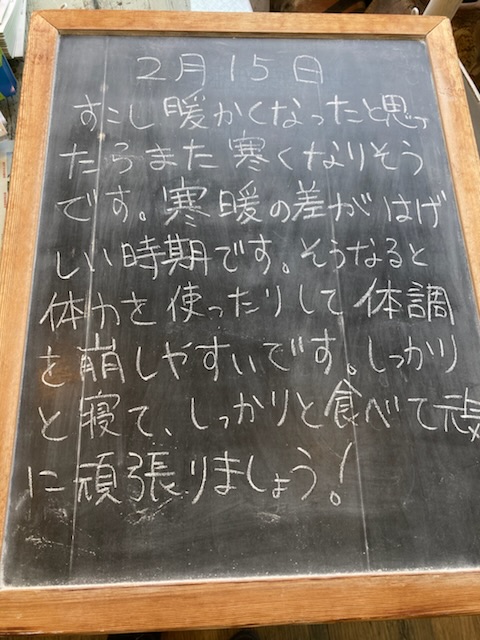 2月15日
すこし暖かくなったと思っ
たらまた寒くなりそう
です。寒暖の差がはげ
しい時期です。そうなると
体力を使ったりして体調
を崩しやすいです。しっかり
と寝て、しっかりと食べて元気
に頑張りましょう!